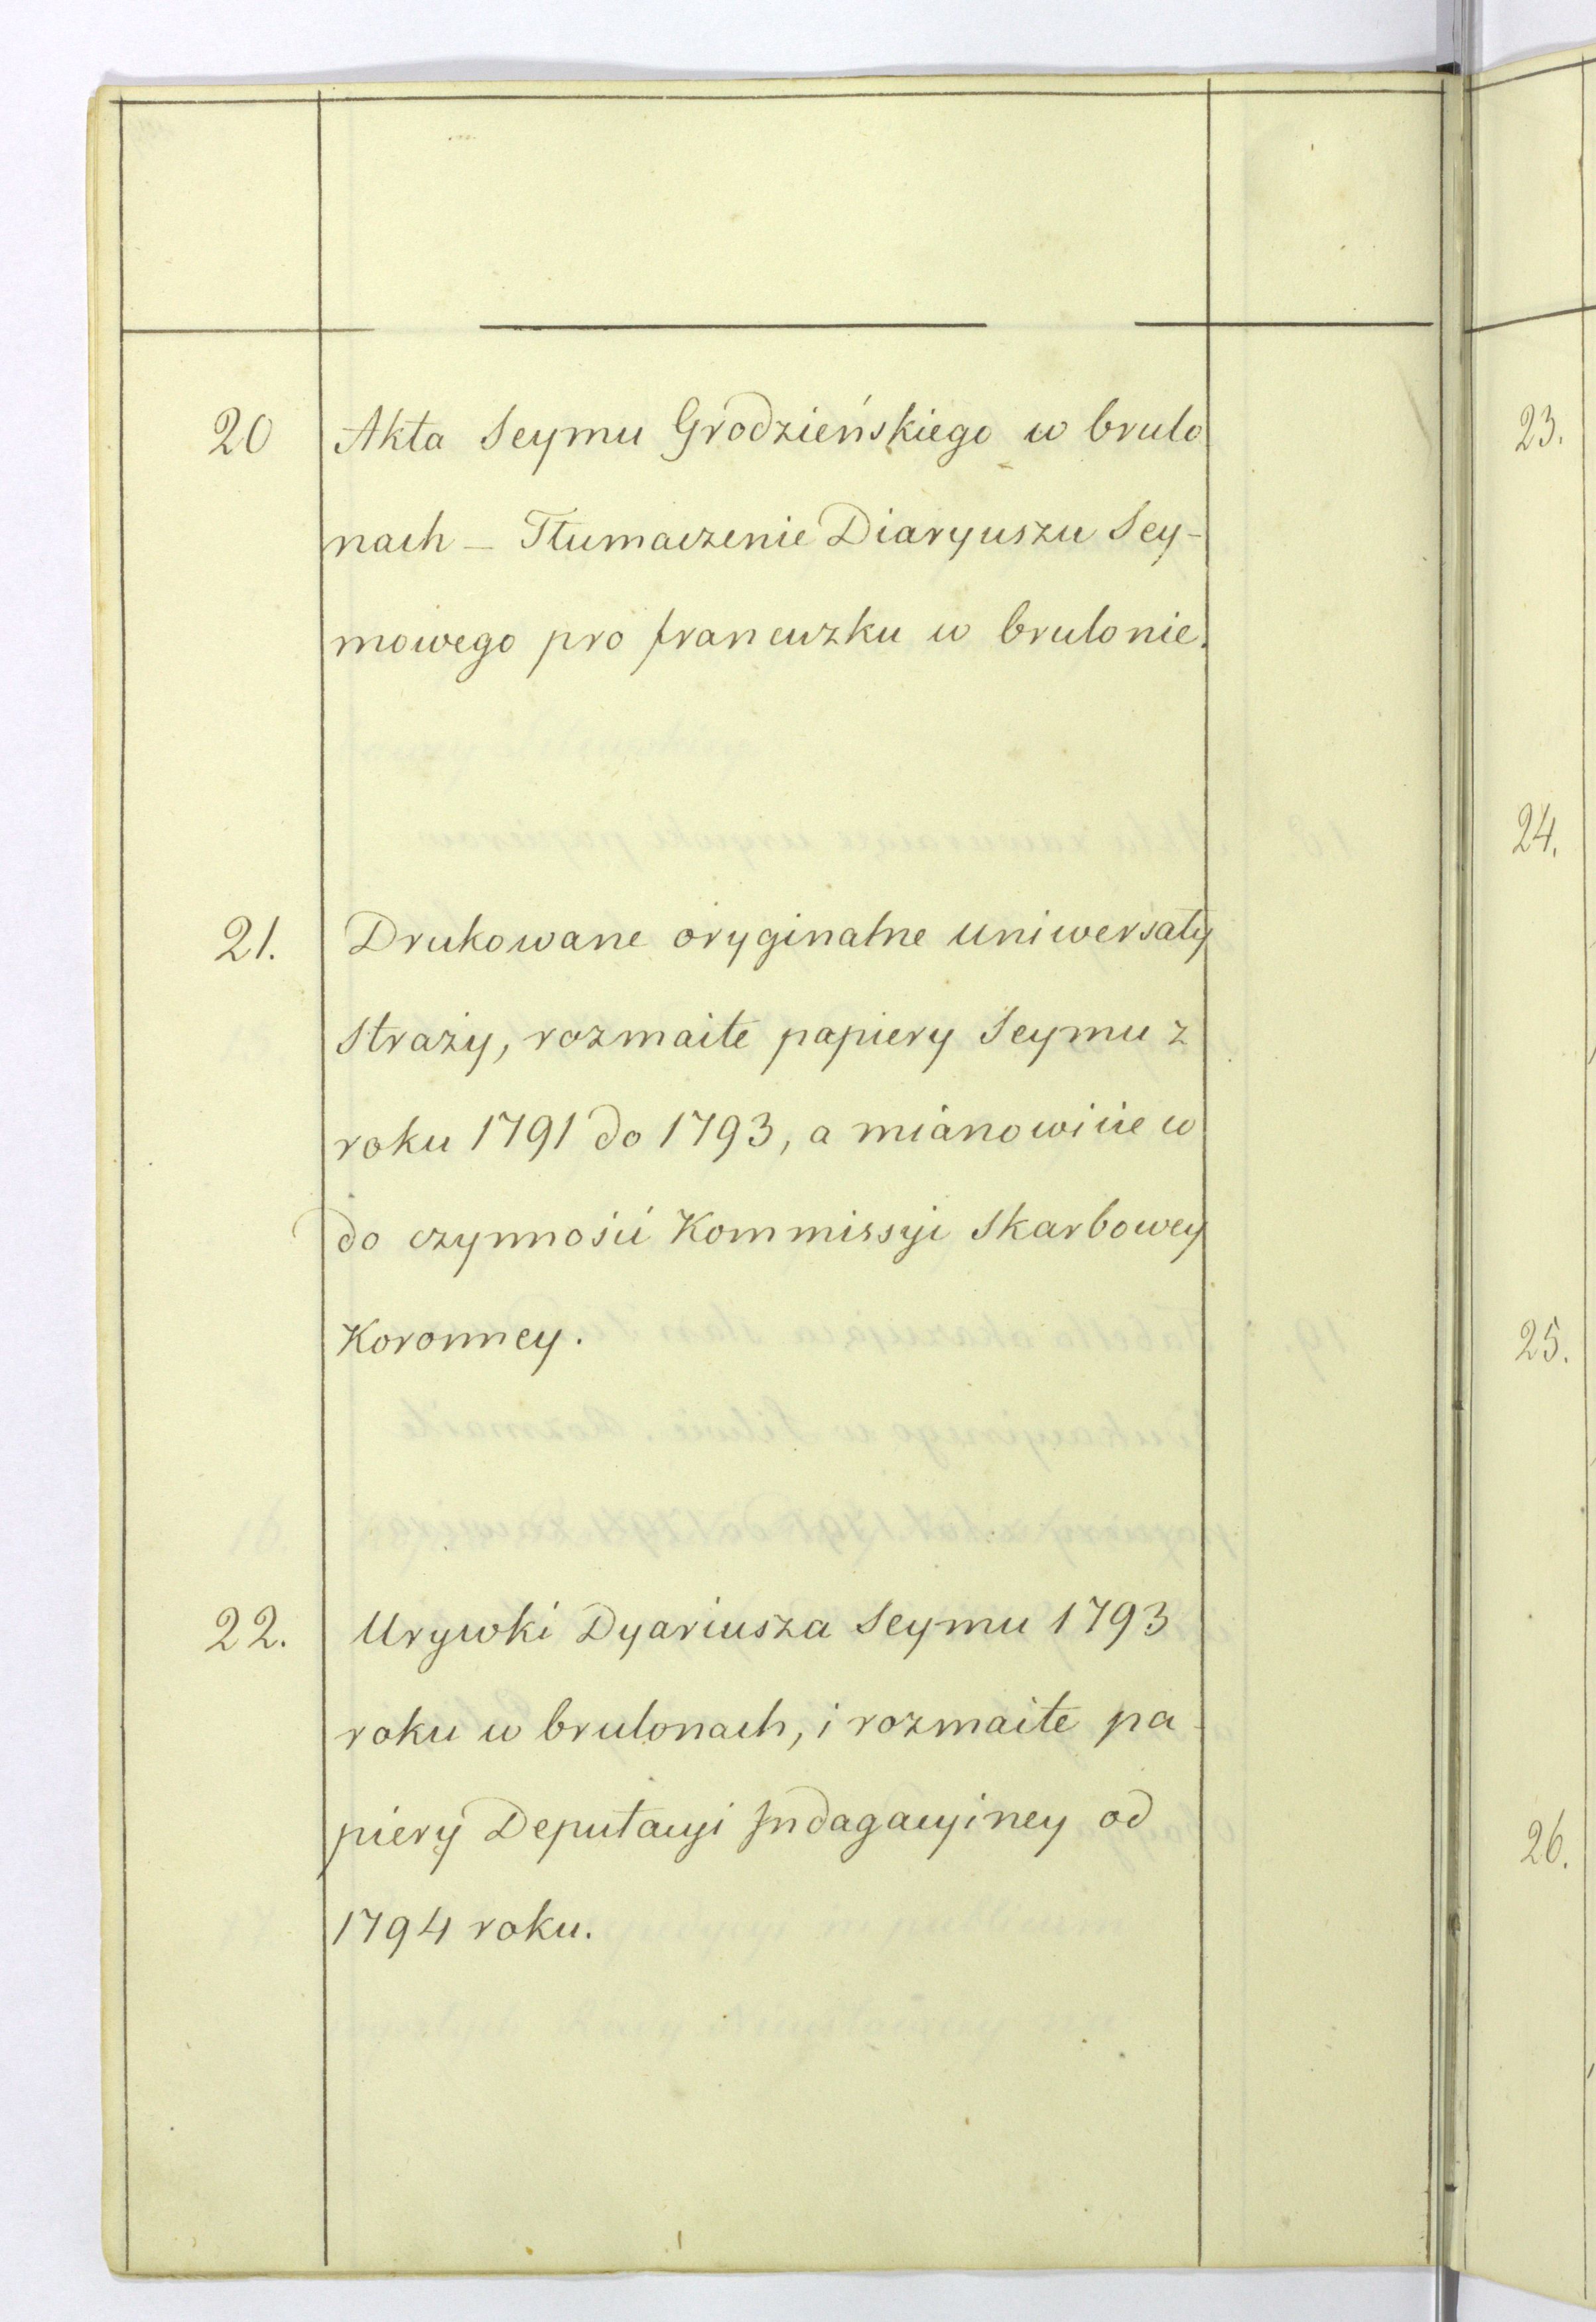 20 Akta Seymu Grodzieńskiego w brulo
nach – Tłumaczenie Diaryuszu Sey-
mowego pro francuzku w brulonie.
21. Drukowane oryginalne uniwersały
Straży, rozmaite papiery Seymu z
roku 1791 do 1793, a mianowicie w
do czynności Kommissyi Skarbowey
Koronney.
22. Urywki Dyariusza Seymu 1793
roku w brulonach, i rozmaite pa-
piery Deputacyi Indagacyiney od
1794 roku.
23.
24.
25.
26.